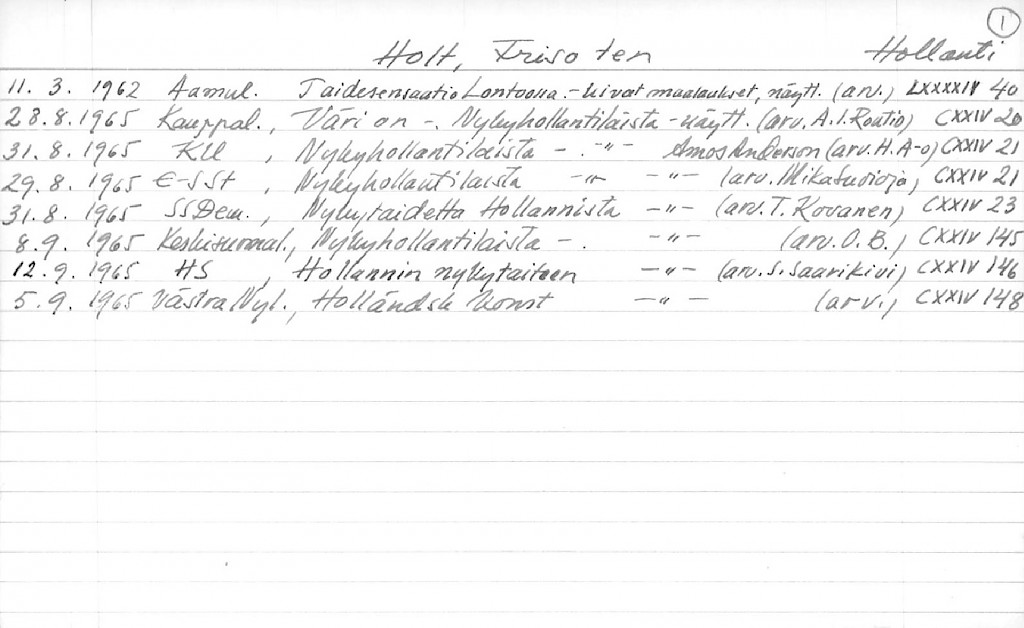 1
Holt, Friso ten Hollanti
11. 3. 1962 Aamul. Taidesensaatio Lontoossa. - kivat maalaukset, näytt. (arv.) LXXXXIV 40
28. 8. 1965 Kauppal., Väri on -. Nykyhollantilaista - näytt. (arv. A.I. Routio) CXXIV 20
31. 8. 1965 KU , Nykyhollantilaista - . -"- Amos Anderson (arv. H. A-o) CXXIV 21
29. 8. 1965 E-SSt , Nykyhollantilaista -"- -"- (arv. Mika Suvioja) CXXIV 21
31. 8. 1965 SSDem., Nykytaidetta Hollannista -"- (arv. T. Kovanen) CXXIV 23
8. 9. 1965 Keskisuomal., Nykyhollantilaista - . -"- (arv. O. B.) CXXIV 145
12. 9. 1965 HS , Hollannin nykytaiteen -"- (arv. S. Saarikivi) CXXIV 146
5. 9. 1965 Västra Nyl., Holländsk konst -"- (arv.) CXXIV 148